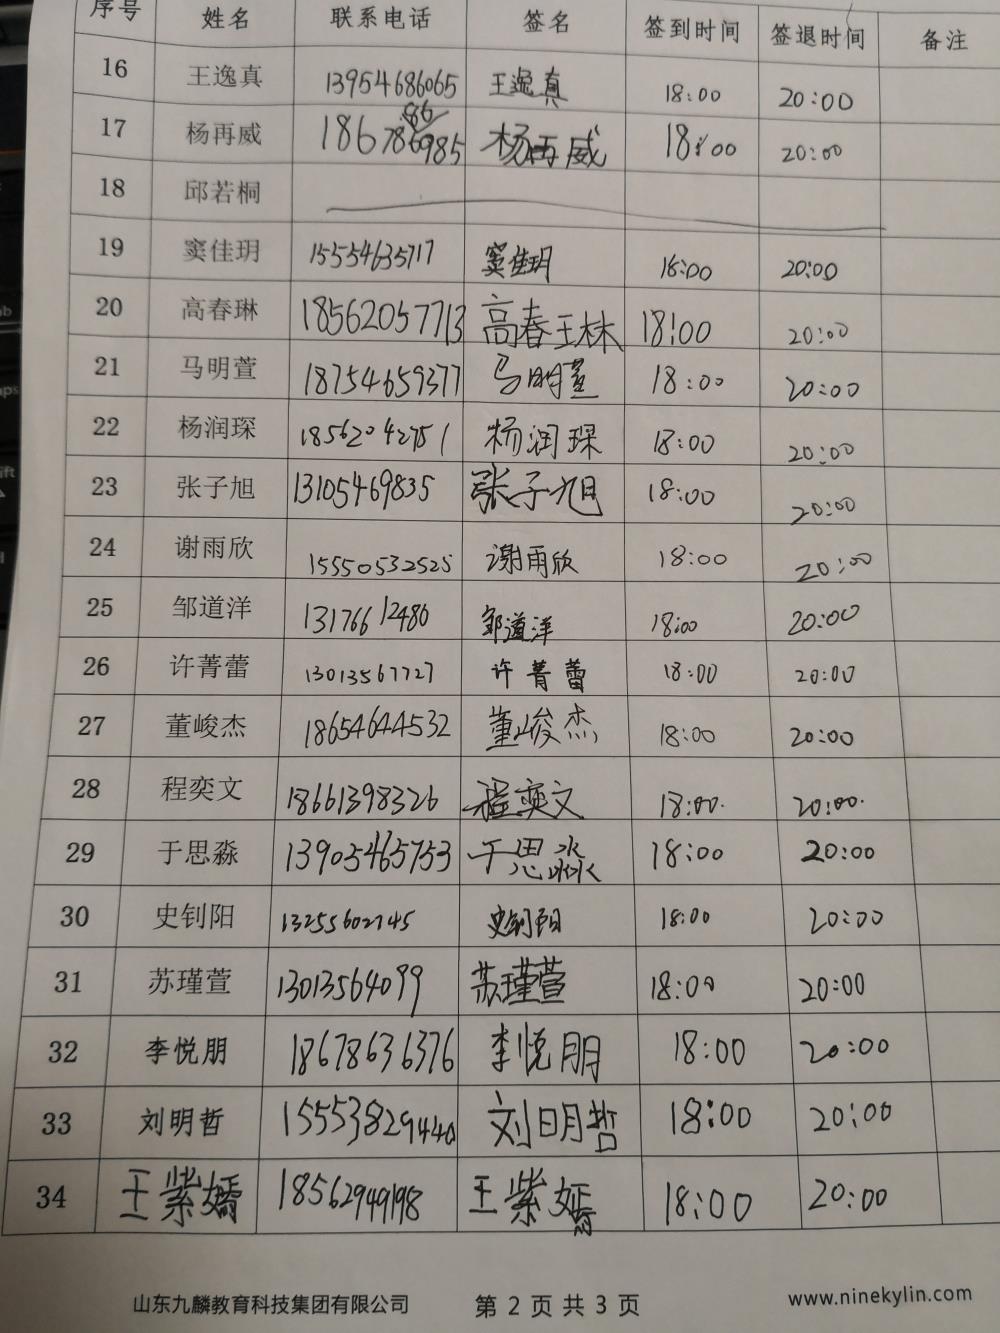 序号 姓名 联系电话 签名 签到时间 签退时间 备注
16 王逸真 13954686065 王逸真 18:00 20:00
17 杨再威 杨再威 18:00 20:00
18 邱若桐
19 窦佳玥 15554635717 窦佳玥 18:00 20:00
20 高春琳 18562057713 高春琳 18:00 20:00
21 马明萱 18754659377 马明萱 18:00 20:00
22 杨润琛 18562042751 杨润琛 18:00 20:00
23 张子旭 13105469835 张子旭 18:00 20:00
24 谢雨欣 15550532525 谢雨欣 18:00 20:00
25 邹道洋 13176612480 邹道洋 18:00 20:00
26 许菁蕾 13013567727 许菁蕾 18:00 20:00
27 董峻杰 18654644532 董峻杰 18:00 20:00
28 程奕文 18661398326 程奕文 18:00 20:00
29 于思淼 13905465753 于思淼 18:00 20:00
30 史钊阳 13255602745 史钊阳 18:00 20:00
31 苏瑾萱 13013564099 苏瑾萱 18:00 20:00
32 李悦朋 18678636376 李悦朋 18:00 20:00
33 刘明哲 15553829440 刘明哲 18:00 20:00
34 王紫嫣 18562949198 王紫嫣 18:00 20:00
山东九麟教育科技集团有限公司 第 2 页 共 3 页 www.ninekylin.com